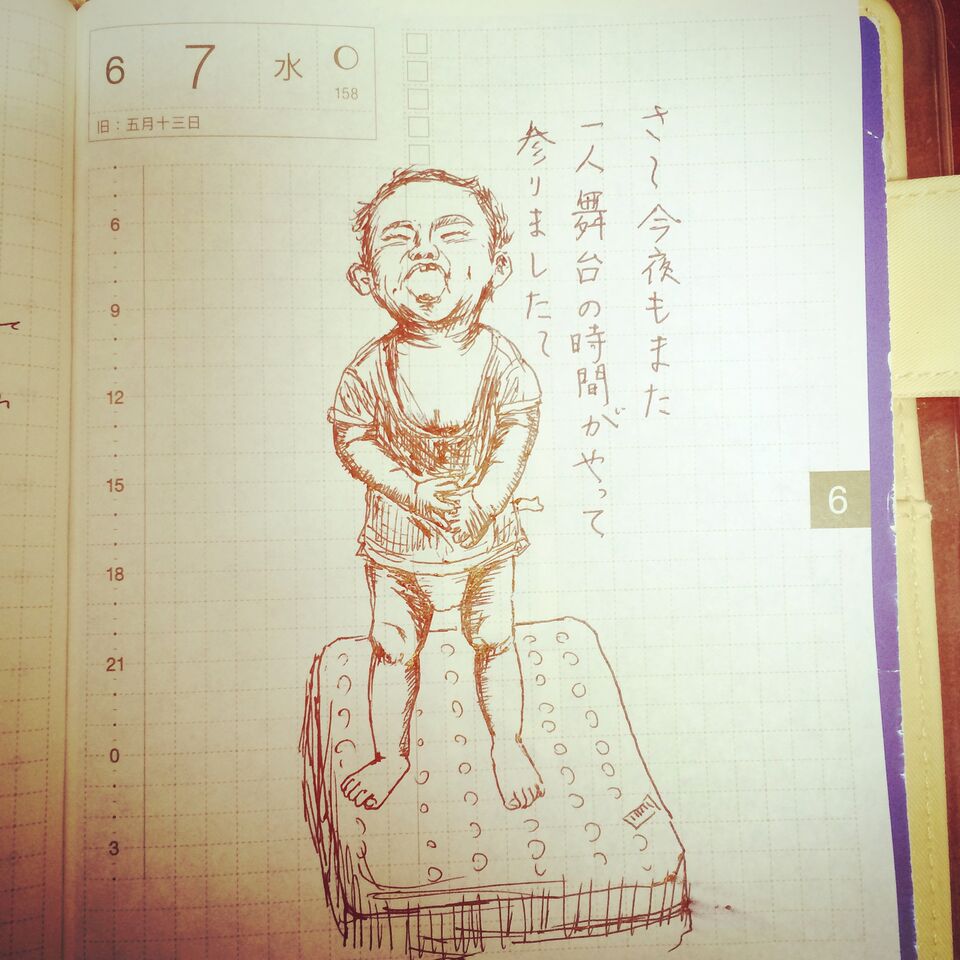 6 7 水
158
旧:五月十三日
さ〜今夜もまた
一人舞台の時間がやって
参りましたて
6
9
12
15
18
21
0
3
6